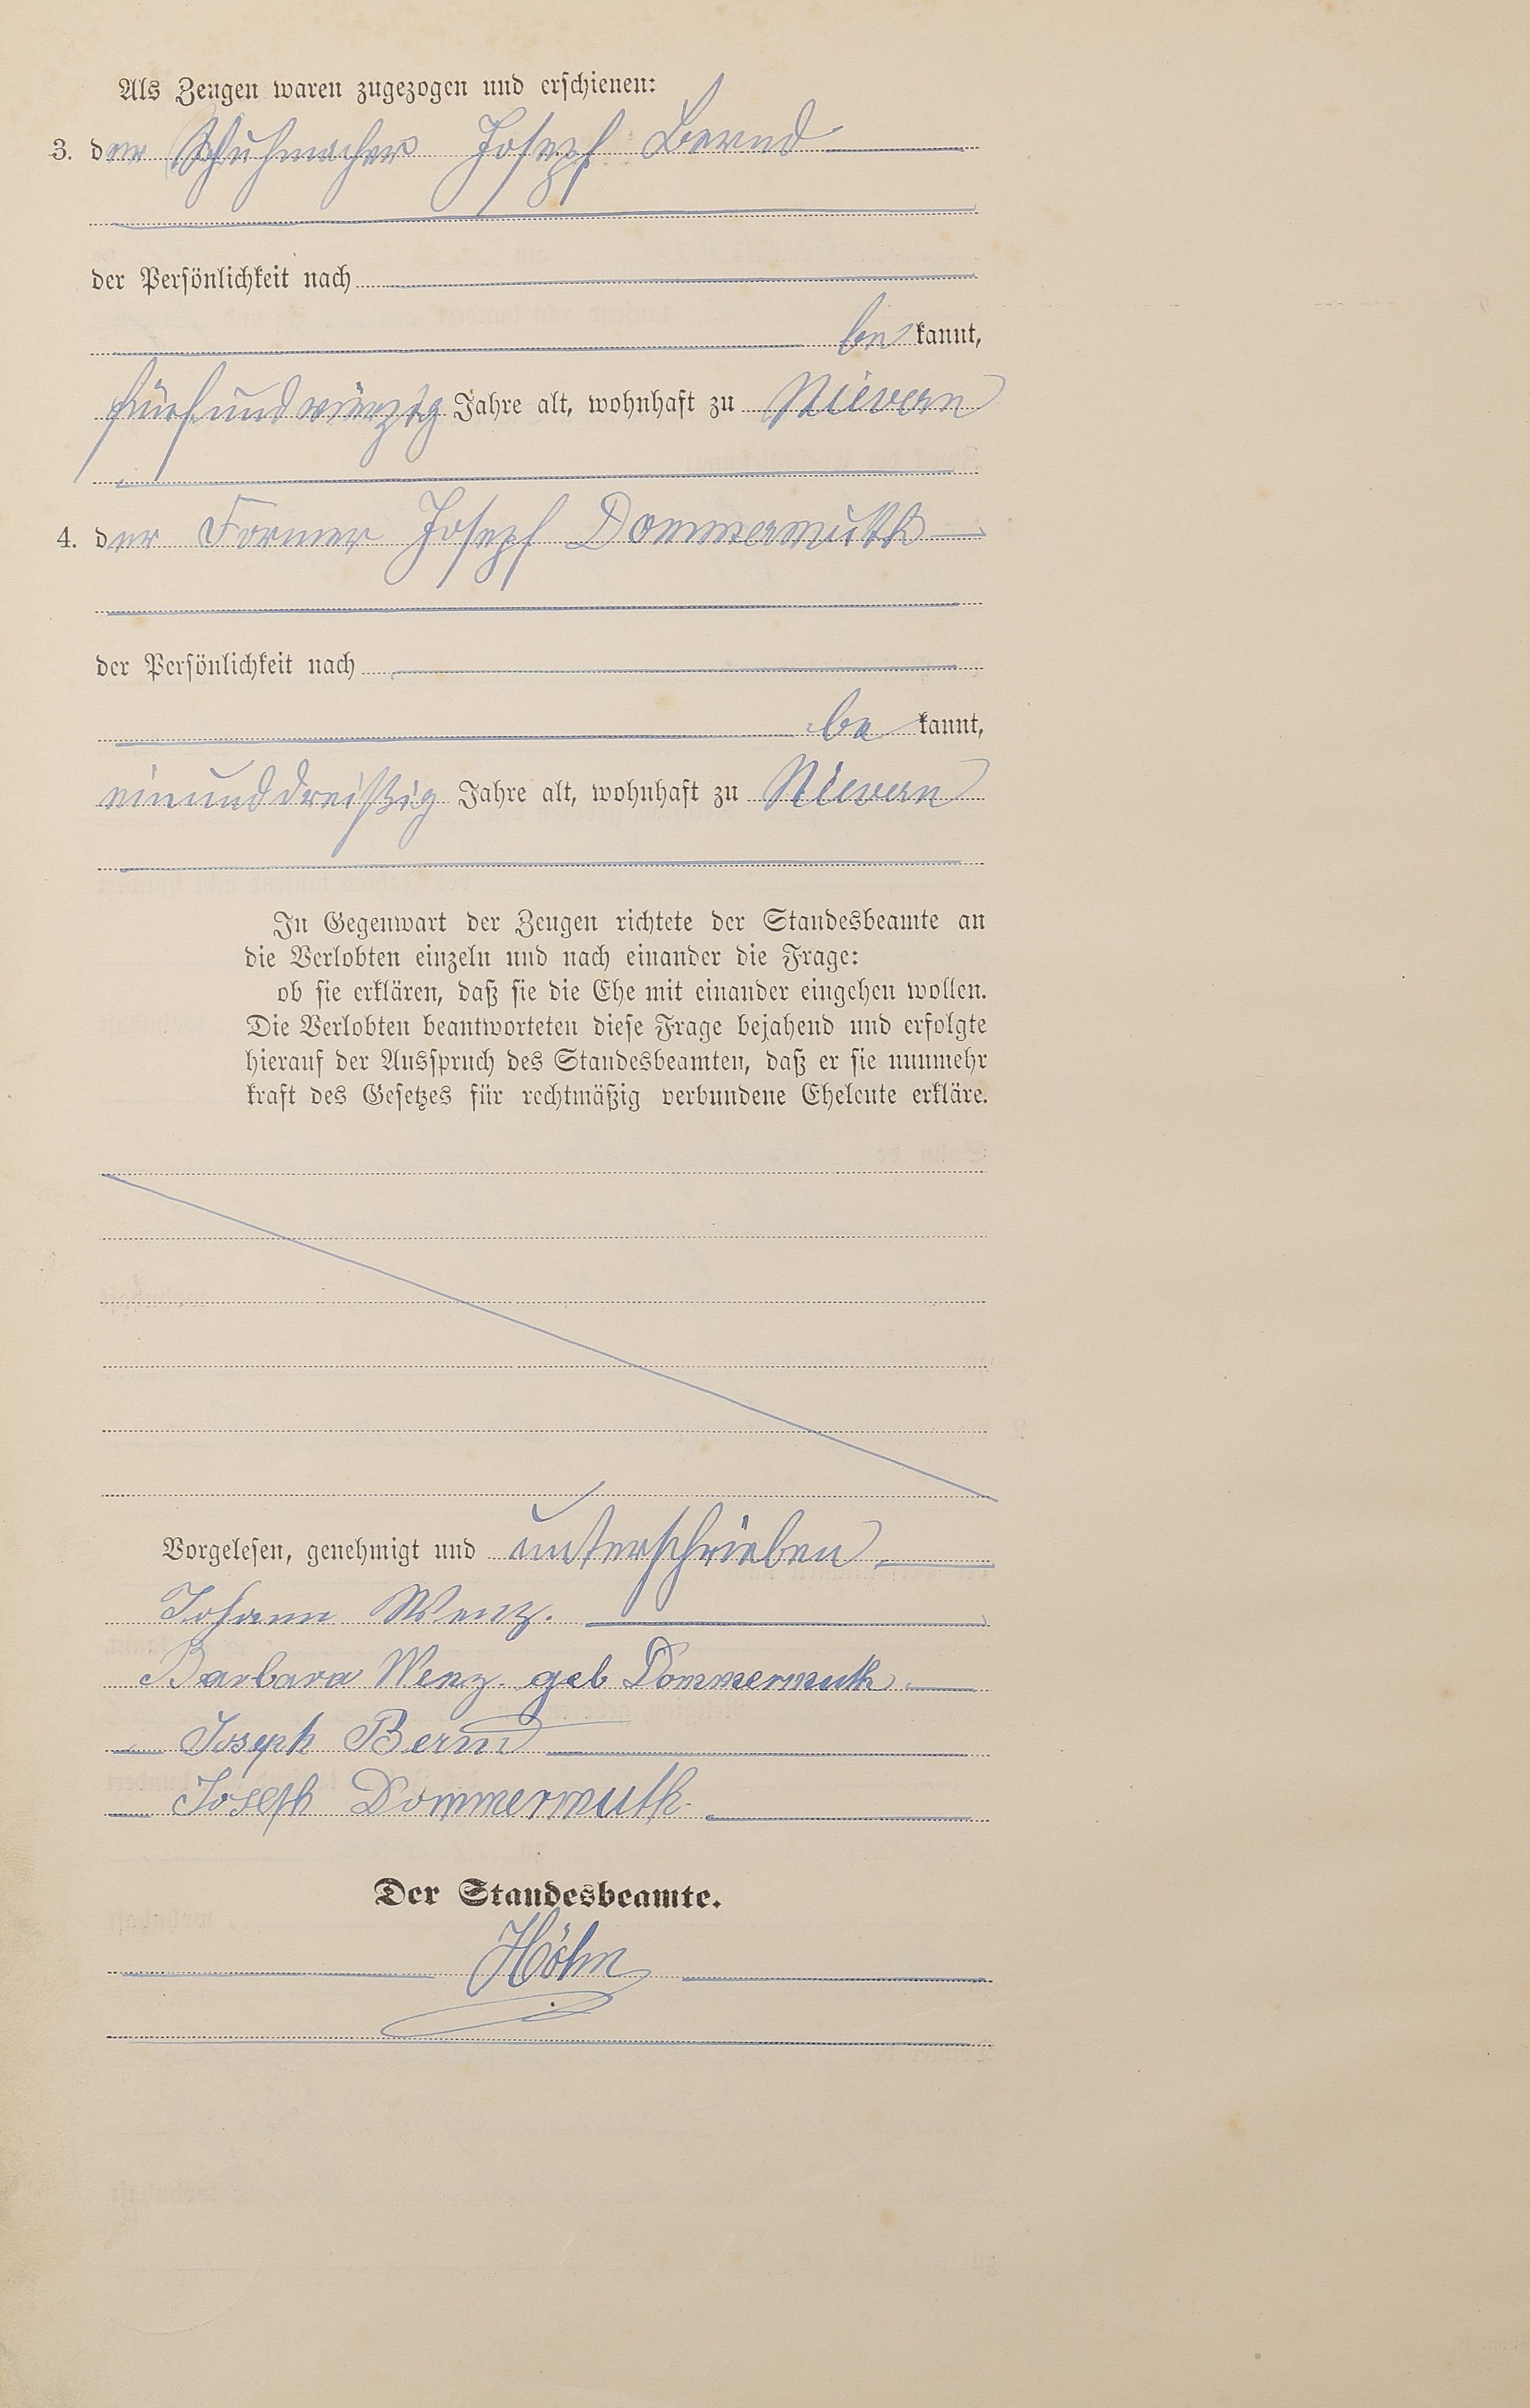 Als Zeugen waren zugezogen und erschienen:
3. der Schuhmacher Joseph Bernd
der Persönlichkeit nach
be kannt,
fünfundvierzig Jahre alt, wohnhaft zu Nievern
4. der Former Joseph Dommermuth
der Persönlichkeit nach
be kannt,
einunddreißig Jahre alt, wohnhaft zu Nievern
In Gegenwart der Zeugen richtete der Standesbeamte an
die Verlobten einzeln und nach einander die Frage:
ob sie erklären, daß sie die Ehe mit einander eingehen wollen.
Die Verlobten beantworteten diese Frage bejahend und erfolgte
hierauf der Ausspruch des Standesbeamten, daß er sie nunmehr
kraft des Gesetzes für rechtmäßig verbundene Eheleute erkläre.
Vorgelesen, genehmigt und unterschrieben
Johann Wenz.
Barbara Wenz geb Dommermuth
Joseph Bernd
Joseph Dommermuth
Der Standesbeamte.
Höhn